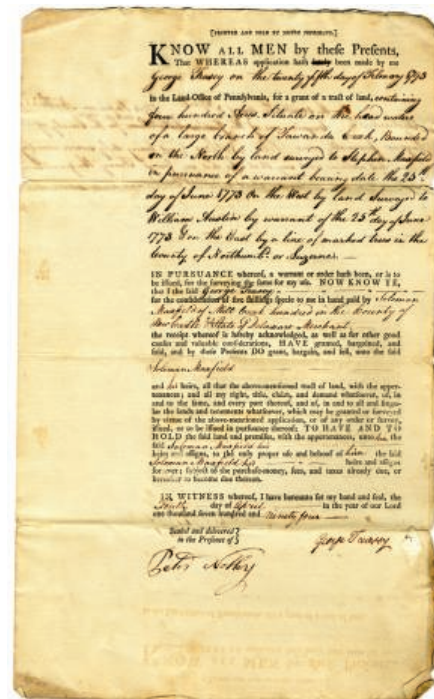 [PRINTED AND SOLD BY
KNOW ALL MEN by these Presents,
That WHEREAS application hath lately been made by me
George on the twenty fifth day of 1773
in the Land-Office of Pennsylvania, for a grant of a tract of land, containing
four hundred Acres, Situate on the head waters
of a large branch of Tawanda Creek, Bounded
on the North by land surveyed to Stephen Maxfield
in pursuance of a warrant bearing date the 25th
day of June 1773 On the West by land Surveyed to
William Austin by warrant of the 25th day of June
1773 & on the East by a line of marked trees in the
County of Northumbd. or Luzerne
IN PURSUANCE whereof, a warrant or order hath been, or is to
be issued, for the surveying the same for my use. NOW KNOW YE,
that I the said George
for the consideration of five shillings specie to me in hand paid by Solomon
Maxfield of Mill Creek hundred in the County of
New Castle & State of Delaware Merchant,
the receipt whereof is hereby acknowledged, as well as for other good
causes and valuable considerations, HAVE granted, bargained, and
sold, and by these Presents DO grant, bargain, and sell, unto the said
Solomon Maxfield
and his heirs, all that the above-mentioned tract of land, with the appur-
tenances; and all my right, title, claim, and demand whatsoever, of, in
and to the same, and every part thereof, and of, in and to all and singu-
lar the lands and tenements whatsoever, which may be granted or surveyed
by virtue of the above-mentioned application, or of any order or survey,
issued, or to be issued in pursuance thereof: TO HAVE AND TO
HOLD the said land and premises, with the appurtenances, unto him the
said Solomon Maxfield his
heirs and assigns, to the only proper use and behoof of him the said
Solomon Maxfield his heirs and assigns
for ever: subject to the purchase-money, fees, and taxes already due, or
hereafter to become due thereon.
IN WITNESS whereof, I have hereunto set my hand and seal, the
day of April in the year of our Lord
one thousand seven hundred and Ninety four
Sealed and delivered
in the Presence of
George
Peter